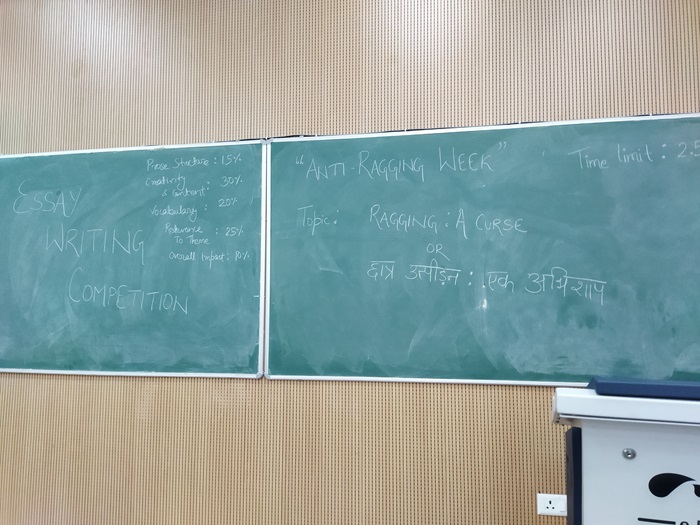 ESSAY
WRITING
COMPETITION
Prose Structure : 15%
Creativity
& content : 30%
Vocabulary : 20%
Relevance
To Theme : 25%
Overall Impact : 10%
"ANTI-RAGGING WEEK"
Time limit : 2.5
Topic : RAGGING : A CURSE
OR
छात्र उत्पीड़न : एक अभिशाप